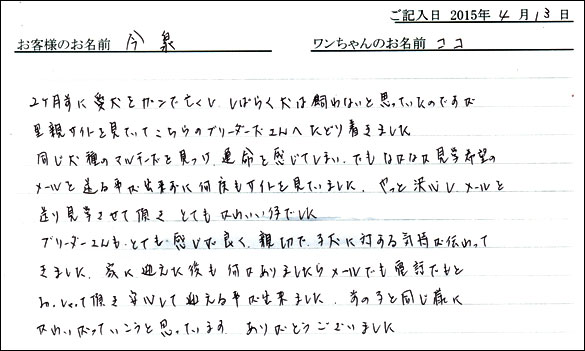 ご記入日 2015年 4月 13日
お客様のお名前 今泉 ワンちゃんのお名前 ココ
2ヶ月前に愛犬をガンで亡くし、しばらく犬は飼わないと思っていたのですが
里親サイトを見ていてこちらのブリーダーさんへたどり着きました
同じ犬種のマルチーズを見つけ、運命と感じてしまい、でもなかなか見学希望の
メールを送る事が出来ずに何度もサイトを見ていました、やっと決心しメールを
送り見学させて頂き とてもかわいい仔でした
ブリーダーさんも、とても感じが良く、親切で、子犬に対する気持が伝わって
きました、家に迎えた後も何かありましたらメールでも電話でもと
おっしゃって頂き安心して迎える事が出来ました、あの子と同じ様に
かわいがっていこうと思っています、ありがとうございました